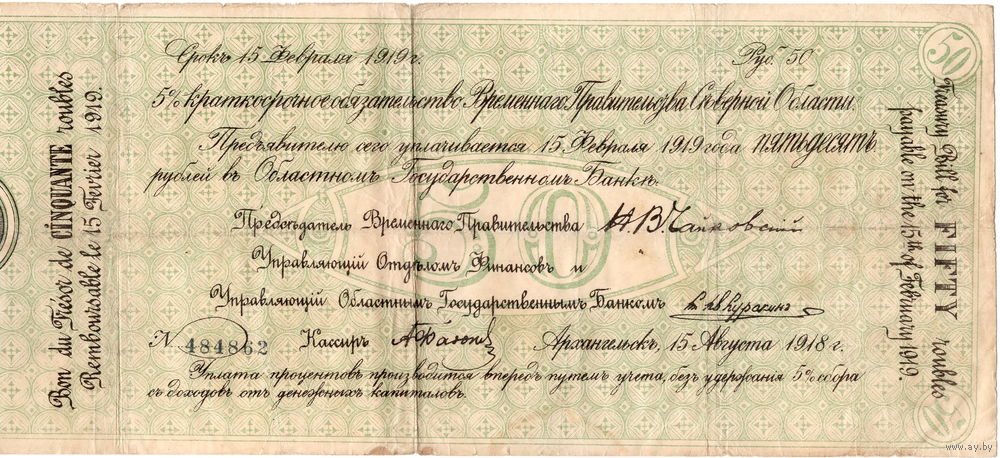 Срокъ 15 Февраля 1919 г. Руб. 50
5% краткосрочное обязательство Временнаго Правительства Сѣверной Области.
Предъявителю сего уплачивается 15 Февраля 1919 года пятьдесятъ
рублей въ Областномъ Государственномъ Банкѣ.
Предсѣдатель Временнаго Правительства Н. В. Чайковскій
Управляющій Отдѣломъ Финансовъ и
Управляющій Областнымъ Государственнымъ Банкомъ Куракинъ
N 484862 Кассиръ Архангельскъ, 15 Августа 1918 г.
Уплата процентовъ производится впередъ путемъ учета, безъ удержанія 5% сбора
съ доходовъ отъ денежныхъ капиталовъ.
50
Bon du Trésor de CINQUANTE roubles
Remboursable le 15 Fevrier 1919.
50
Treasury Bill for FIFTY roubles
payable on the 15th of February 1919.
50
www.ay.by